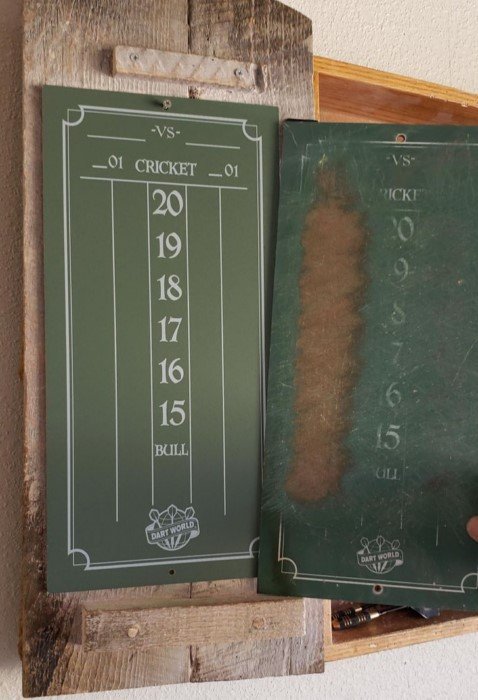 -VS-
__01 CRICKET __01
20
19
18
17
16
15
BULL
DART WORLD
-VS-
RICKET
0
9
8
7
6
15
ULL
DART WORLD